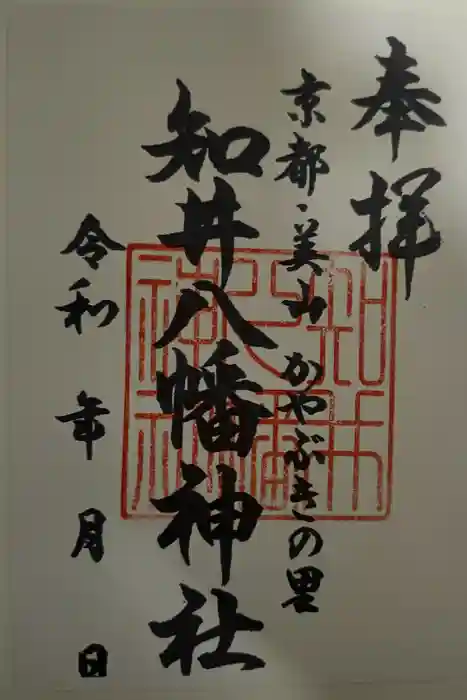 奉拝
京都・美山 かやぶきの里
知井八幡神社
令和 年 月 日
知井八幡神社